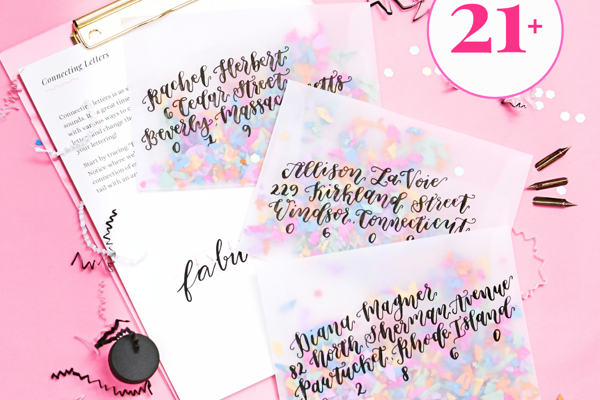 21+
Connecting Letters
letters is an
a great time
with various ways to
and change the
your lettering!
Start by tracing
Notice where
connection of
tail with an
fabu
Rachel Herbert
6 Cedar Street
Beverly, Massac etts
0 1 9
Allison LaVoie
229 Kirkland Street
Windsor, Connecticut
0 6 0
Diana Magner
82 North Sherman Avenue
Pawtucket, Rhode Island
0 2 8 6 0